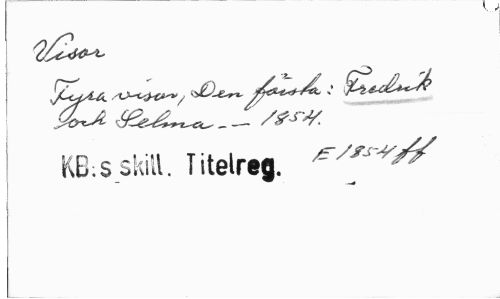 Visor
Fyra visor, Den första: Fredrik
och Selma. — 1854.
KB:s skill. Titelreg. E 1854 ff